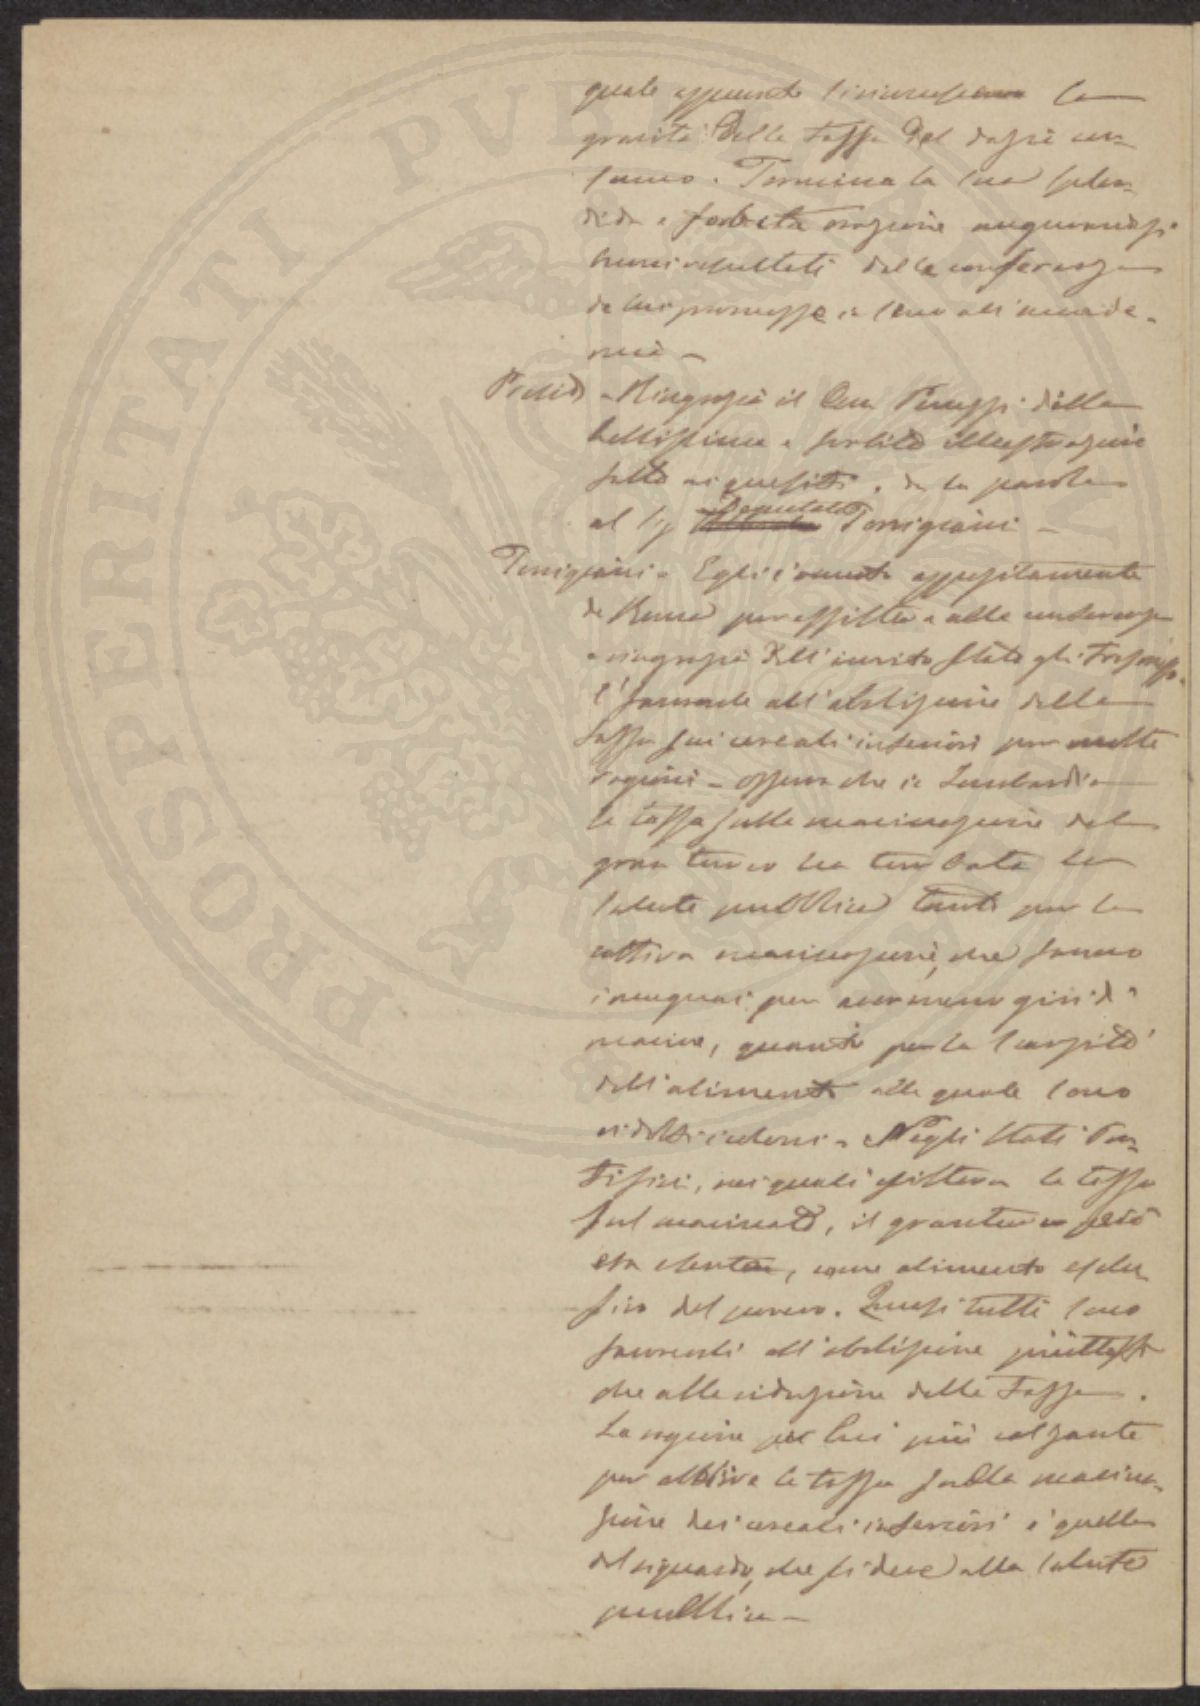 quale appunto la
gravità della tassa del dazio con-
sumo. Termina la sua splen-
dida e forbita orazione augurandosi
buoni resultati dalla conferenza
da lui promossa in seno all'accade-
mia -
Presid - Ringrazia il Com Peruzzi della
bellissima e forbita illustrazione
fatta ai quesiti. da la parola
al Sig Deputato Torrigiani -
Torrigiani - Egli venuto appositamente
da Roma per assistere alla conferenza
e ringrazia dell'invito statogli
favorevole all'abolizione della
tassa sui cereali inferiori per molte
ragioni - osserva che in Lombardia
la tassa sulla macinazione del
gran turco ha turbata la
salute pubblica tanto per la
cattiva macinazione, che fanno
i mugnai per
macine, quanto per la scarsità
dell'alimento alla quale sono
ridotti - Negli Stati Pon-
tifici, nei quali esisteva la tassa
sul macinato, il granturco però
era esente, come alimento esclu-
sivo del povero. Quasi tutti sono
favorevoli all'abolizione piuttosto
che alla riduzione della Tassa.
La ragione per lui più calzante
per abolire la tassa sulla macina-
zione dei cereali inferiori è quella
del riguardo, che si deve alla salute
pubblica -
PROSPERITATI PUBLICAE